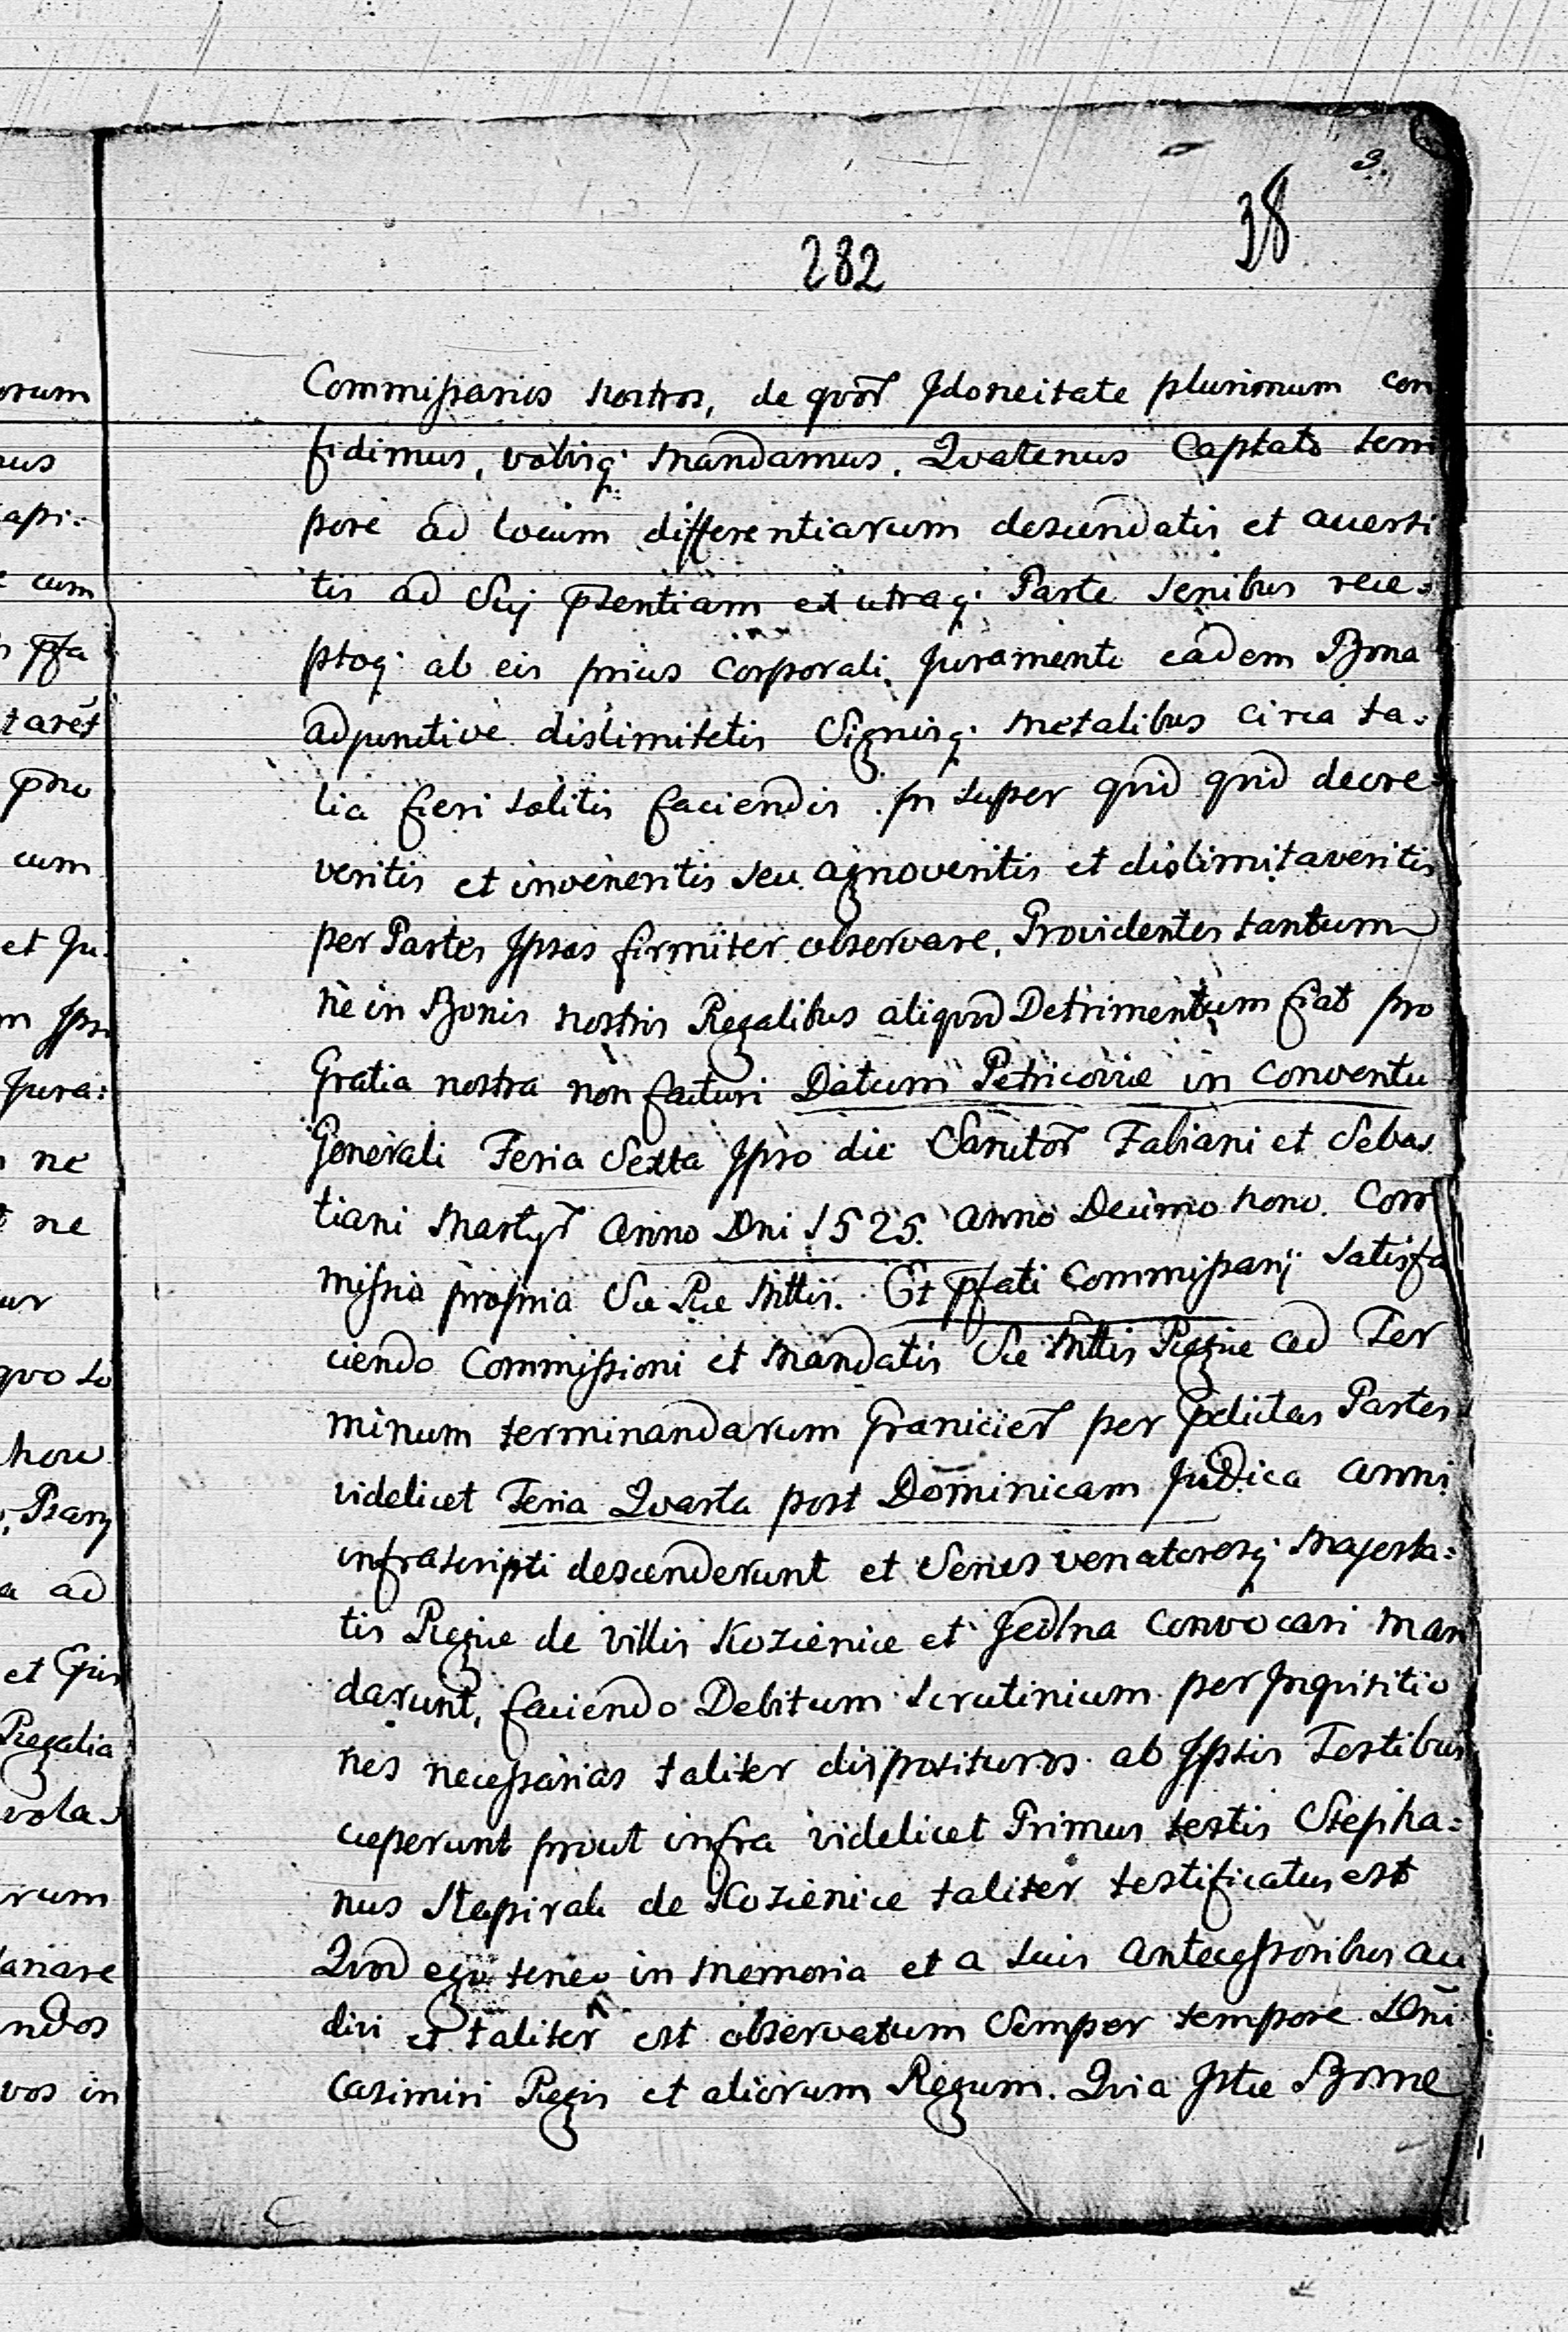 3.
38
282
Commissarios nostros, de quor Idoneitate plurimum con
fidimus, vobisq; mandamus. Quatenus Captato tem
pore ad locum differentiarum descendatis et accersi
tis ad Sui pzentiam ex utraq; Parte senibus rece=
ptoq; ab eis prius corporali Juramento eadem Bona
adjunctive dislimitetis Signisq; metalibus circa ta=
lia fieri solitis faciendis. In super quid quid decre=
veritis et inveneritis seu agnoveritis et dislimitaveritis
per Partes Ipsas firmiter observare. Providentes tantum
ne in Bonis nostris Regalibus aliquod Detrimentum fiat pro
Gratia nostra non facturi Datum Petricoviae in conventu
Generali Feria Sexta Ipso die Sanctor Fabiani et Sebas
tiani Martyr Anno Dni 1525. Anno Decimo nono. Com
missio propria Sae Rae Mttis. Et pfati Commissarij satisfa
ciendo Commissioni et Mandatis Sae Mttis Regiae ad Ter
minum terminandarum Granicier per pdictas Partes
videlicet Feria Quarta post Dominicam Judica Anni
infrascripti descenderunt et Senes venatoresq; Majesta=
tis Regiae de villis Kozienice et Jedlna convocari man
darunt, faciendo Debitum scrutinium per Inquisitio
nes necessarias taliter disposituros ab Ipsis Testibus
ceperunt prout infra videlicet Primus testis Stepha=
nus de Kozienice taliter testificatus est
Quod ego teneo in memoria et a suis Antecessoribus au
divi et taliter est observatum Semper tempore Dni
Casimiri Regis et aliorum Regum. Quia Istae Bonae
orum
nus
capi=
cum
pfa
taret
cum
et Ju=
m Ipsi
Jura=
ne
ne
ur
quo
a ad
et
Regalia
vola=
rum
ndos
vos in